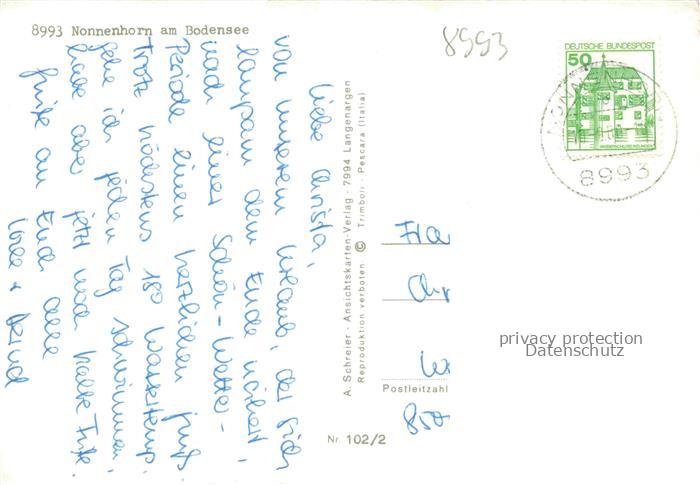 8993 Nonnenhorn am Bodensee
8993
DEUTSCHE BUNDESPOST
50
8993
Liebe Christa,
von unserem Urlaub, der sich
langsam dem Ende nähert,
nach einer Schön-Wetter-
Periode einen herzlichen Gruß.
Trotz höchstens 18° Wassertemp.
gehe ich jeden Tag schwimmen,
habe aber jetzt noch kalte Füße.
Grüße an Euch alle
A. Schreier - Ansichtskarten-Verlag - 7994 Langenargen
Reproduktion verboten © Trimboli - Pescara (Italia)
Postleitzahl
Nr. 102/2
privacy protection
Datenschutz